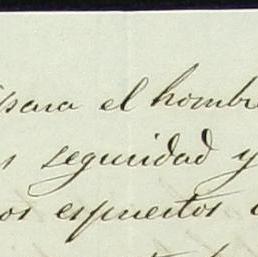 para el hombre
s seguridad y
os espuestos